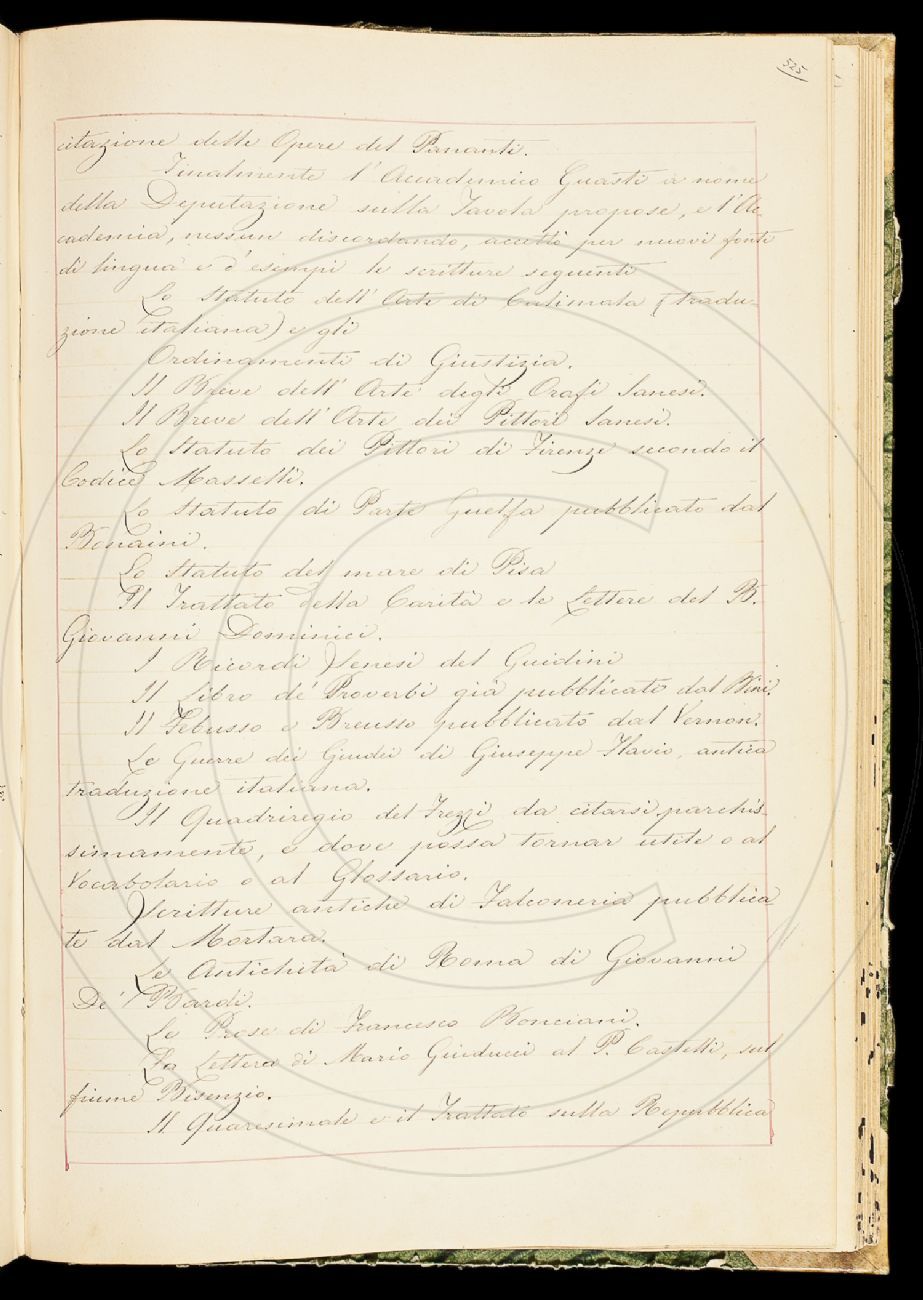 525
citazione delle Opere del Pananti.
Finalmente l'Accademico Guasti a nome
della Deputazione sulla Tavola propose, e l'Ac-
cademia, nessun discordando, accettò per nuovi fonte
di lingua e d'esempi le scritture seguenti
Lo Statuto dell'Arte di Calimala (tradu-
zione italiana) e gli
Ordinamenti di Giustizia.
Il Breve dell'Arte degli Orafi Sanesi.
Il Breve dell'Arte dei Pittori Sanesi.
Lo Statuto dei Pittori di Firenze secondo il
Codice Masselli.
Lo Statuto di Parte Guelfa pubblicato dal
Bonaini.
Lo Statuto del mare di Pisa
Il Trattato della Carità e le Lettere del B.
Giovanni Dominici.
I Ricordi Senesi del Guidini
Il Libro de' Proverbi già pubblicato dal Bini.
Il Febusso e Breusso pubblicato dal Vernon.
Le Guerre dei Giudei di Giuseppe Flavio, antica
traduzione italiana.
Il Quadriregio del Frezzi da citarsi parchis-
simamente, e dove possa tornar utile o al
Vocabolario o al Glossario.
Scritture antiche di Falconeria pubblica
te dal Mortara.
Le Antichità di Roma di Giovanni
De' Bardi.
Le Prose di Francesco Bonciani.
La Lettera di Mario Guiducci al P. Castelli, sul
fiume Bisenzio.
Il Quaresimale e il Trattato sulla Repubblica